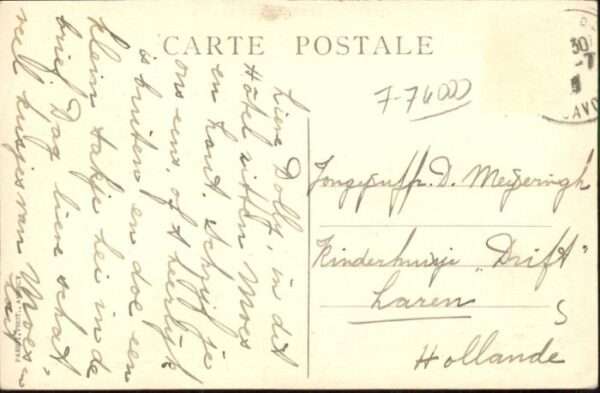 CARTE POSTALE
30
-7
AVO
7-74000
Lieve Dolly, in dit
Hôtel zitten Moes
en Lout. Schrijf je
ons eens, of 't heerlijk
is buiten en doe een
klein takje hei in de
brief. Dag lieve schat,
veel kusjes van Moes en
Jongejuffr. D. Meyeringh
Kinderhuisje "Drift"
Laren
Hollande